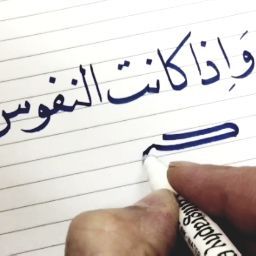 وَإِذا كانت النفوس
كب
Calligraphy